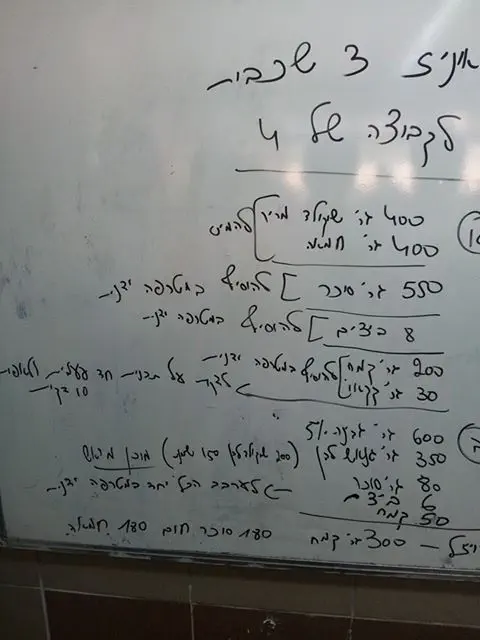 3 שכבות
לקבוצה של 4
400 גר' שוקולד מריר
400 גר' חמאה
להמיס
550 גר' סוכר ] להוסיף במטרפה ידנית
8 ביצים ] להוסיף במטרפה ידנית
200 גר' קמח
30 גר' קקאו
להוסיף במטרפה ידנית
על תבנית חד פעמית
10 דקות
600 גר' גבינה 5%
350 גר' גנאש לבן (200 שוקולד לבן 150 שמנת) מוכן מראש
80 גר' סוכר
6 ביצים
50 קמח
לערבב הכל יחד במטרפה ידנית
— 300 גר' קמח 180 סוכר חום 180 חמאה